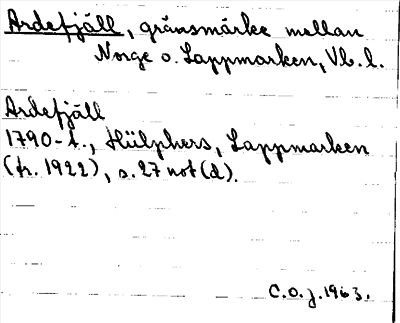 Ardefjäll, gränsmärke mellan
Norge o. Lappmarken, Vb. l.
Ardefjäll
1790-t., Hülphers, Lappmarken
(tr. 1922), s. 27 not (d).
C.O.J. 1963.